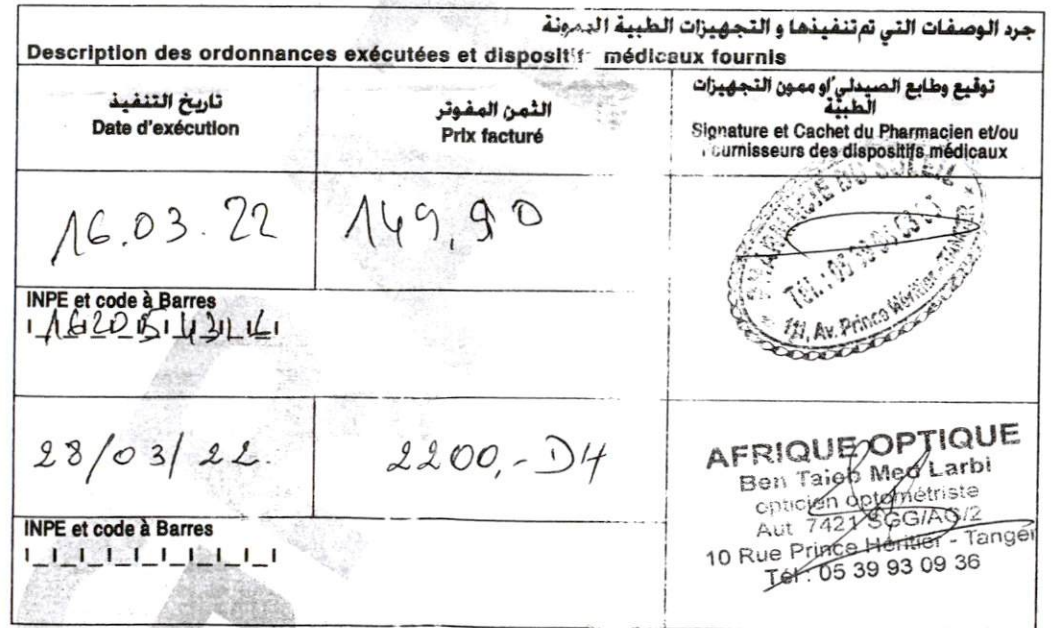 جرد الوصفات التي تم تنفيذها و التجهيزات الطبية الممونة
Description des ordonnances exécutées et dispositifs médicaux fournis
تاريخ التنفيذ
Date d'exécution
الثمن المفوتر
Prix facturé
توقيع وطابع الصيدلي أو ممون التجهيزات
الطبية
Signature et Cachet du Pharmacien et/ou
Fournisseurs des dispositifs médicaux
16.03.22
149,90
PHARMACIE DU SOLEIL
TEL.: 05
111, Av. Prince Héritier - TANGER
INPE et code à Barres
28/03/22.
2200,- DH
AFRIQUE OPTIQUE
Ben Taieb Med Larbi
opticien optométriste
Aut 7421 SGG/AG/2
10 Rue Prince Héritier - Tanger
Tél : 05 39 93 09 36
INPE et code à Barres